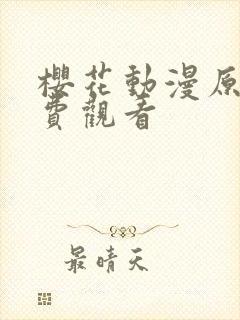 櫻花動漫原
費觀看
最晴天